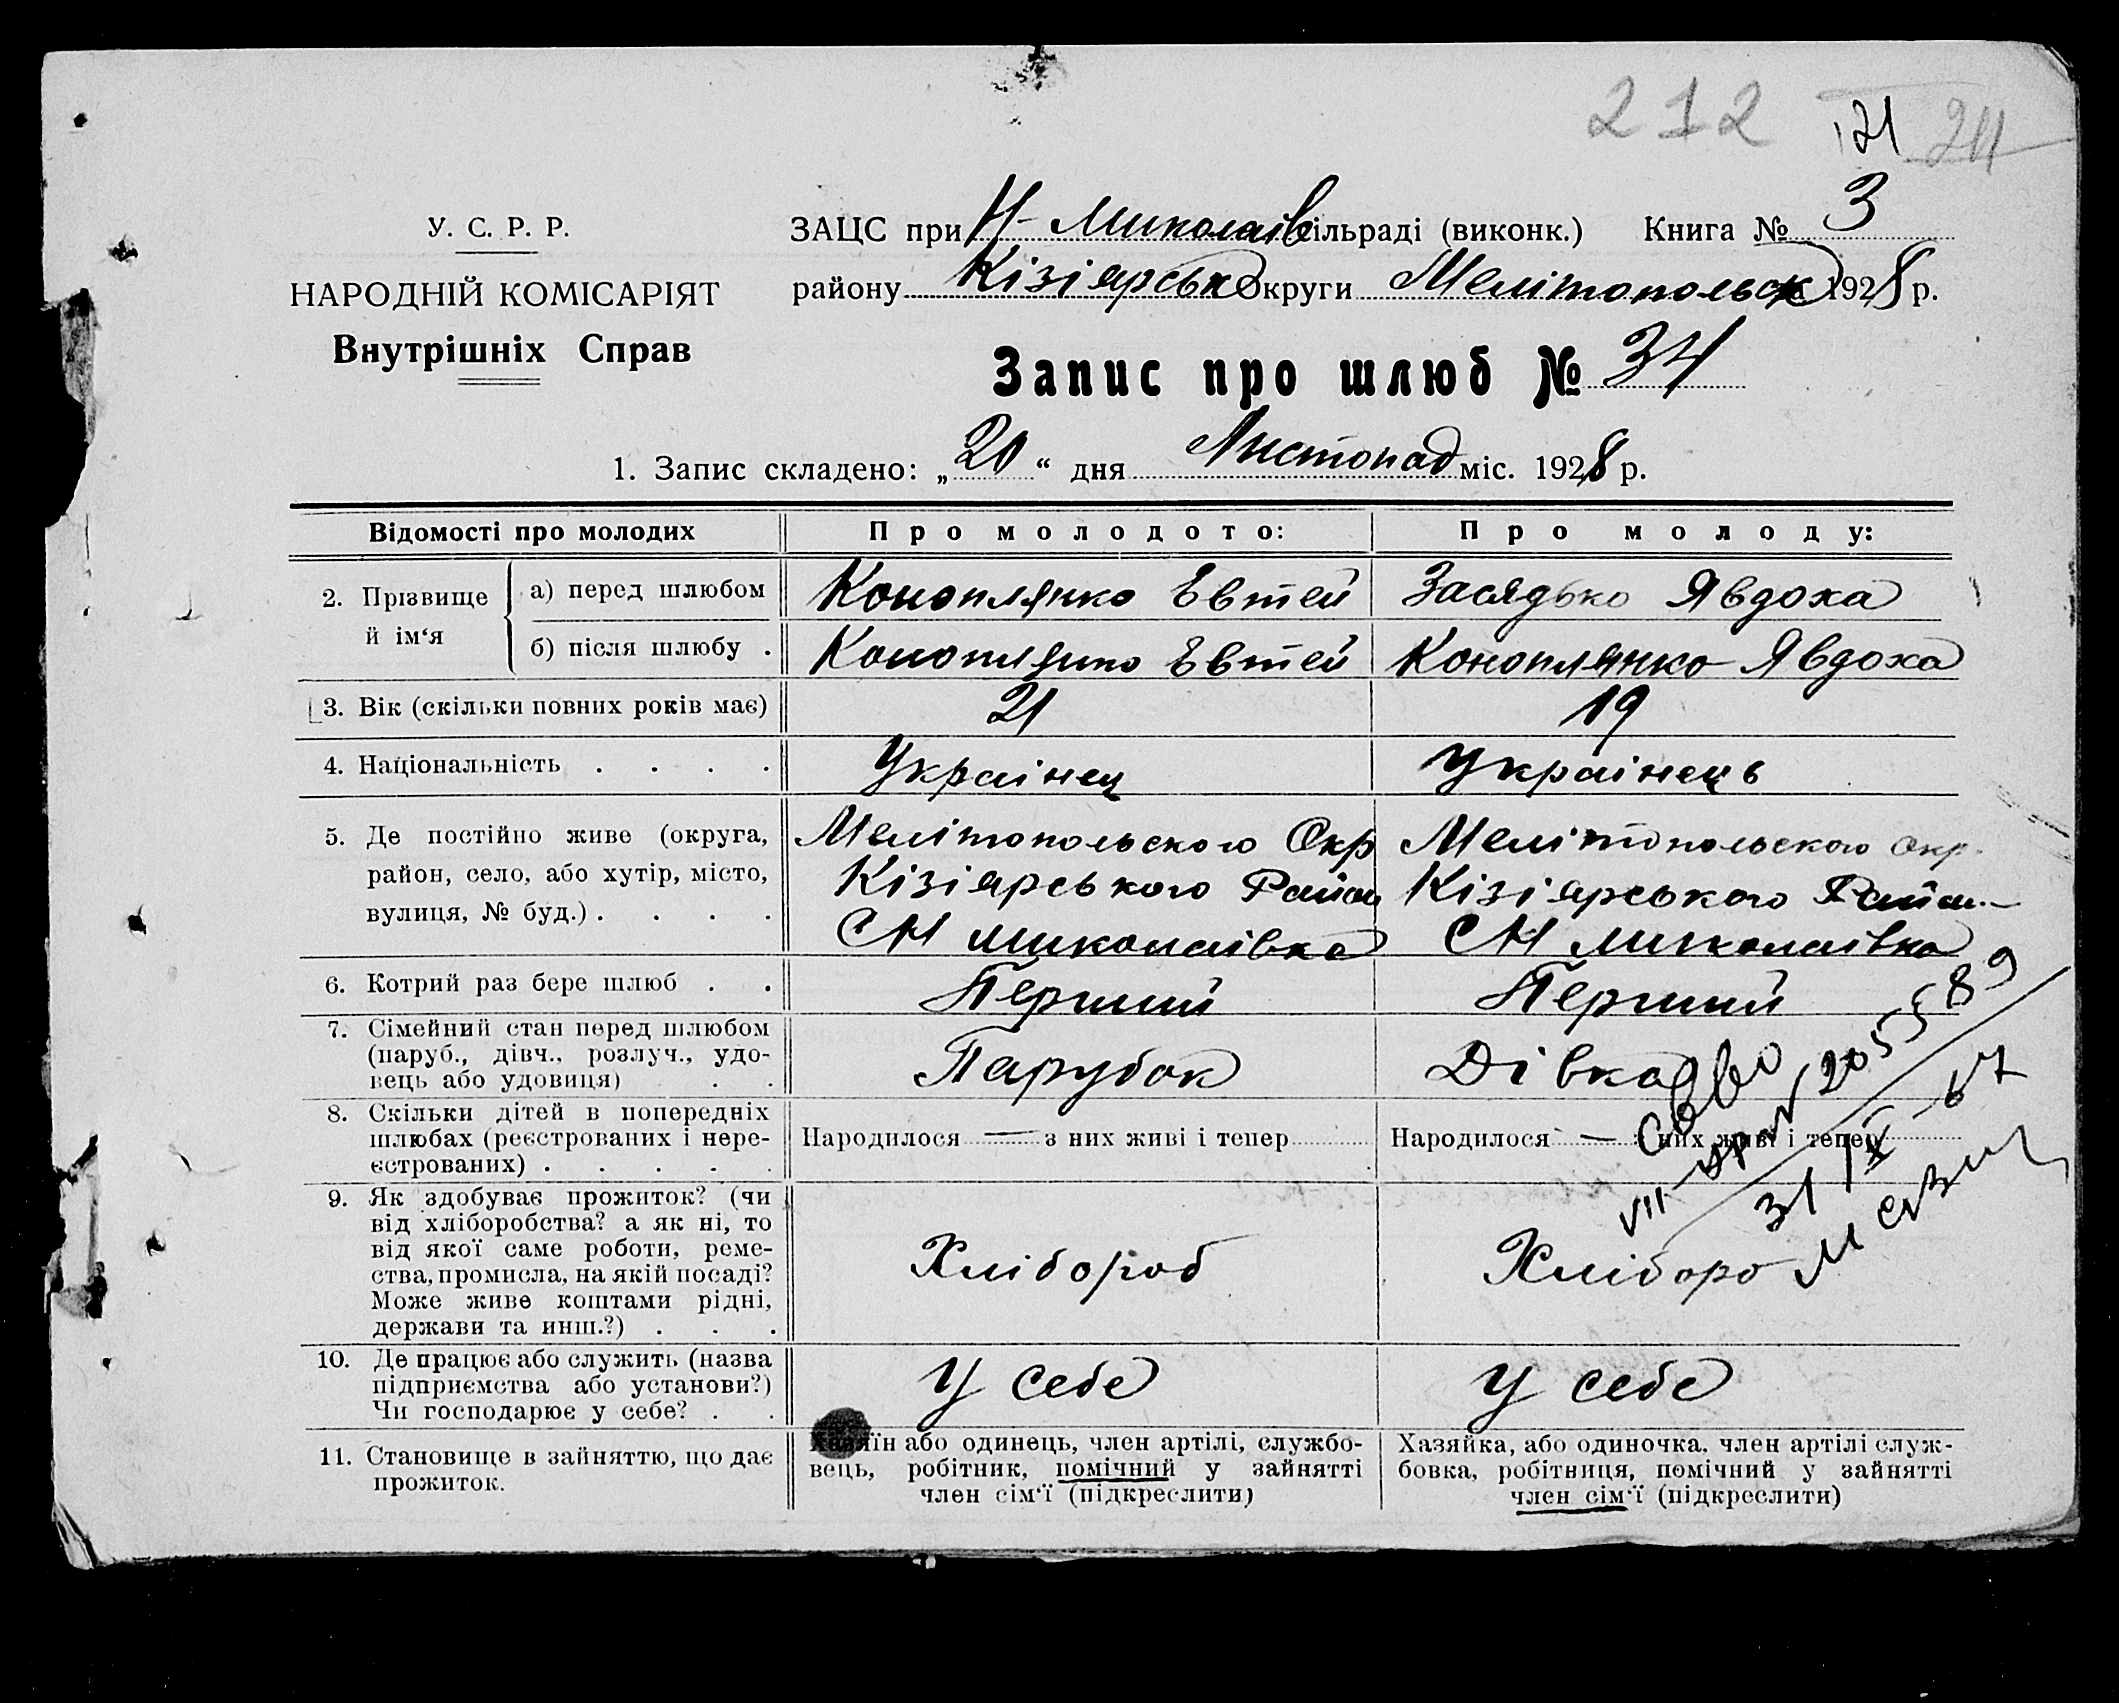 212 121 211
У. С. Р. Р.
НАРОДНІЙ КОМІСАРІЯТ
Внутрішніх Справ
ЗАЦС при Н-Миколаїв сільраді (виконк.) Книга № 3
району Кізіярськ Округи Мелітопольськ 1928 р.
Запис про шлюб № 34
1. Запис складено: „20“ дня Листопад міс. 1928 р.
Відомості про молодих Про молодого: Про молоду:
2. Прізвище й ім‘я
а) перед шлюбом Коноплянко Евтей Засядько Явдоха
б) після шлюбу . Коноплянко Евтей Коноплянко Явдоха
3. Вік (скільки повних років має) 21 19
4. Національність . . . . Українец Українець
5. Де постійно живе (округа, Мелітопольского Окр Мелітопольского Окр.
район, село, або хутір, місто, Кізіярського Район Кізіярського Район
вулиця, № буд.) . . . . С Н Миколаївка С Н Миколаївка
6. Котрий раз бере шлюб . . Перший Перший
7. Сімейний стан перед шлюбом
(паруб., дівч., розлуч., удо- Парубок Дівка
вець або удовиця) . .
8. Скільки дітей в попередніх
шлюбах (реєстрованих і нере- Народилося — з них живі і тепер Народилося — з них живі і тепер
єстрованих) . . . . .
9. Як здобуває прожиток? (чи
від хліборобства? а як ні, то
від якої саме роботи, реме-
ства, промисла, на якій посаді? Хлібороб Хліборо
Може живе коштами рідні,
держави та инш.?) . . .
10. Де працює або служить (назва
підприємства або установи?) У себе У себе
Чи господарює у себе? . .
11. Становище в зайняттю, що дає
прожиток.
Хазяїн або одинець, член артілі, службо-
вець, робітник, помічний у зайнятті
член сім‘ї (підкреслити)
Хазяйка, або одиночка, член артілі служ-
бовка, робітниця, помічний у зайнятті
член сім‘ї (підкреслити)
205589
31/IX-67